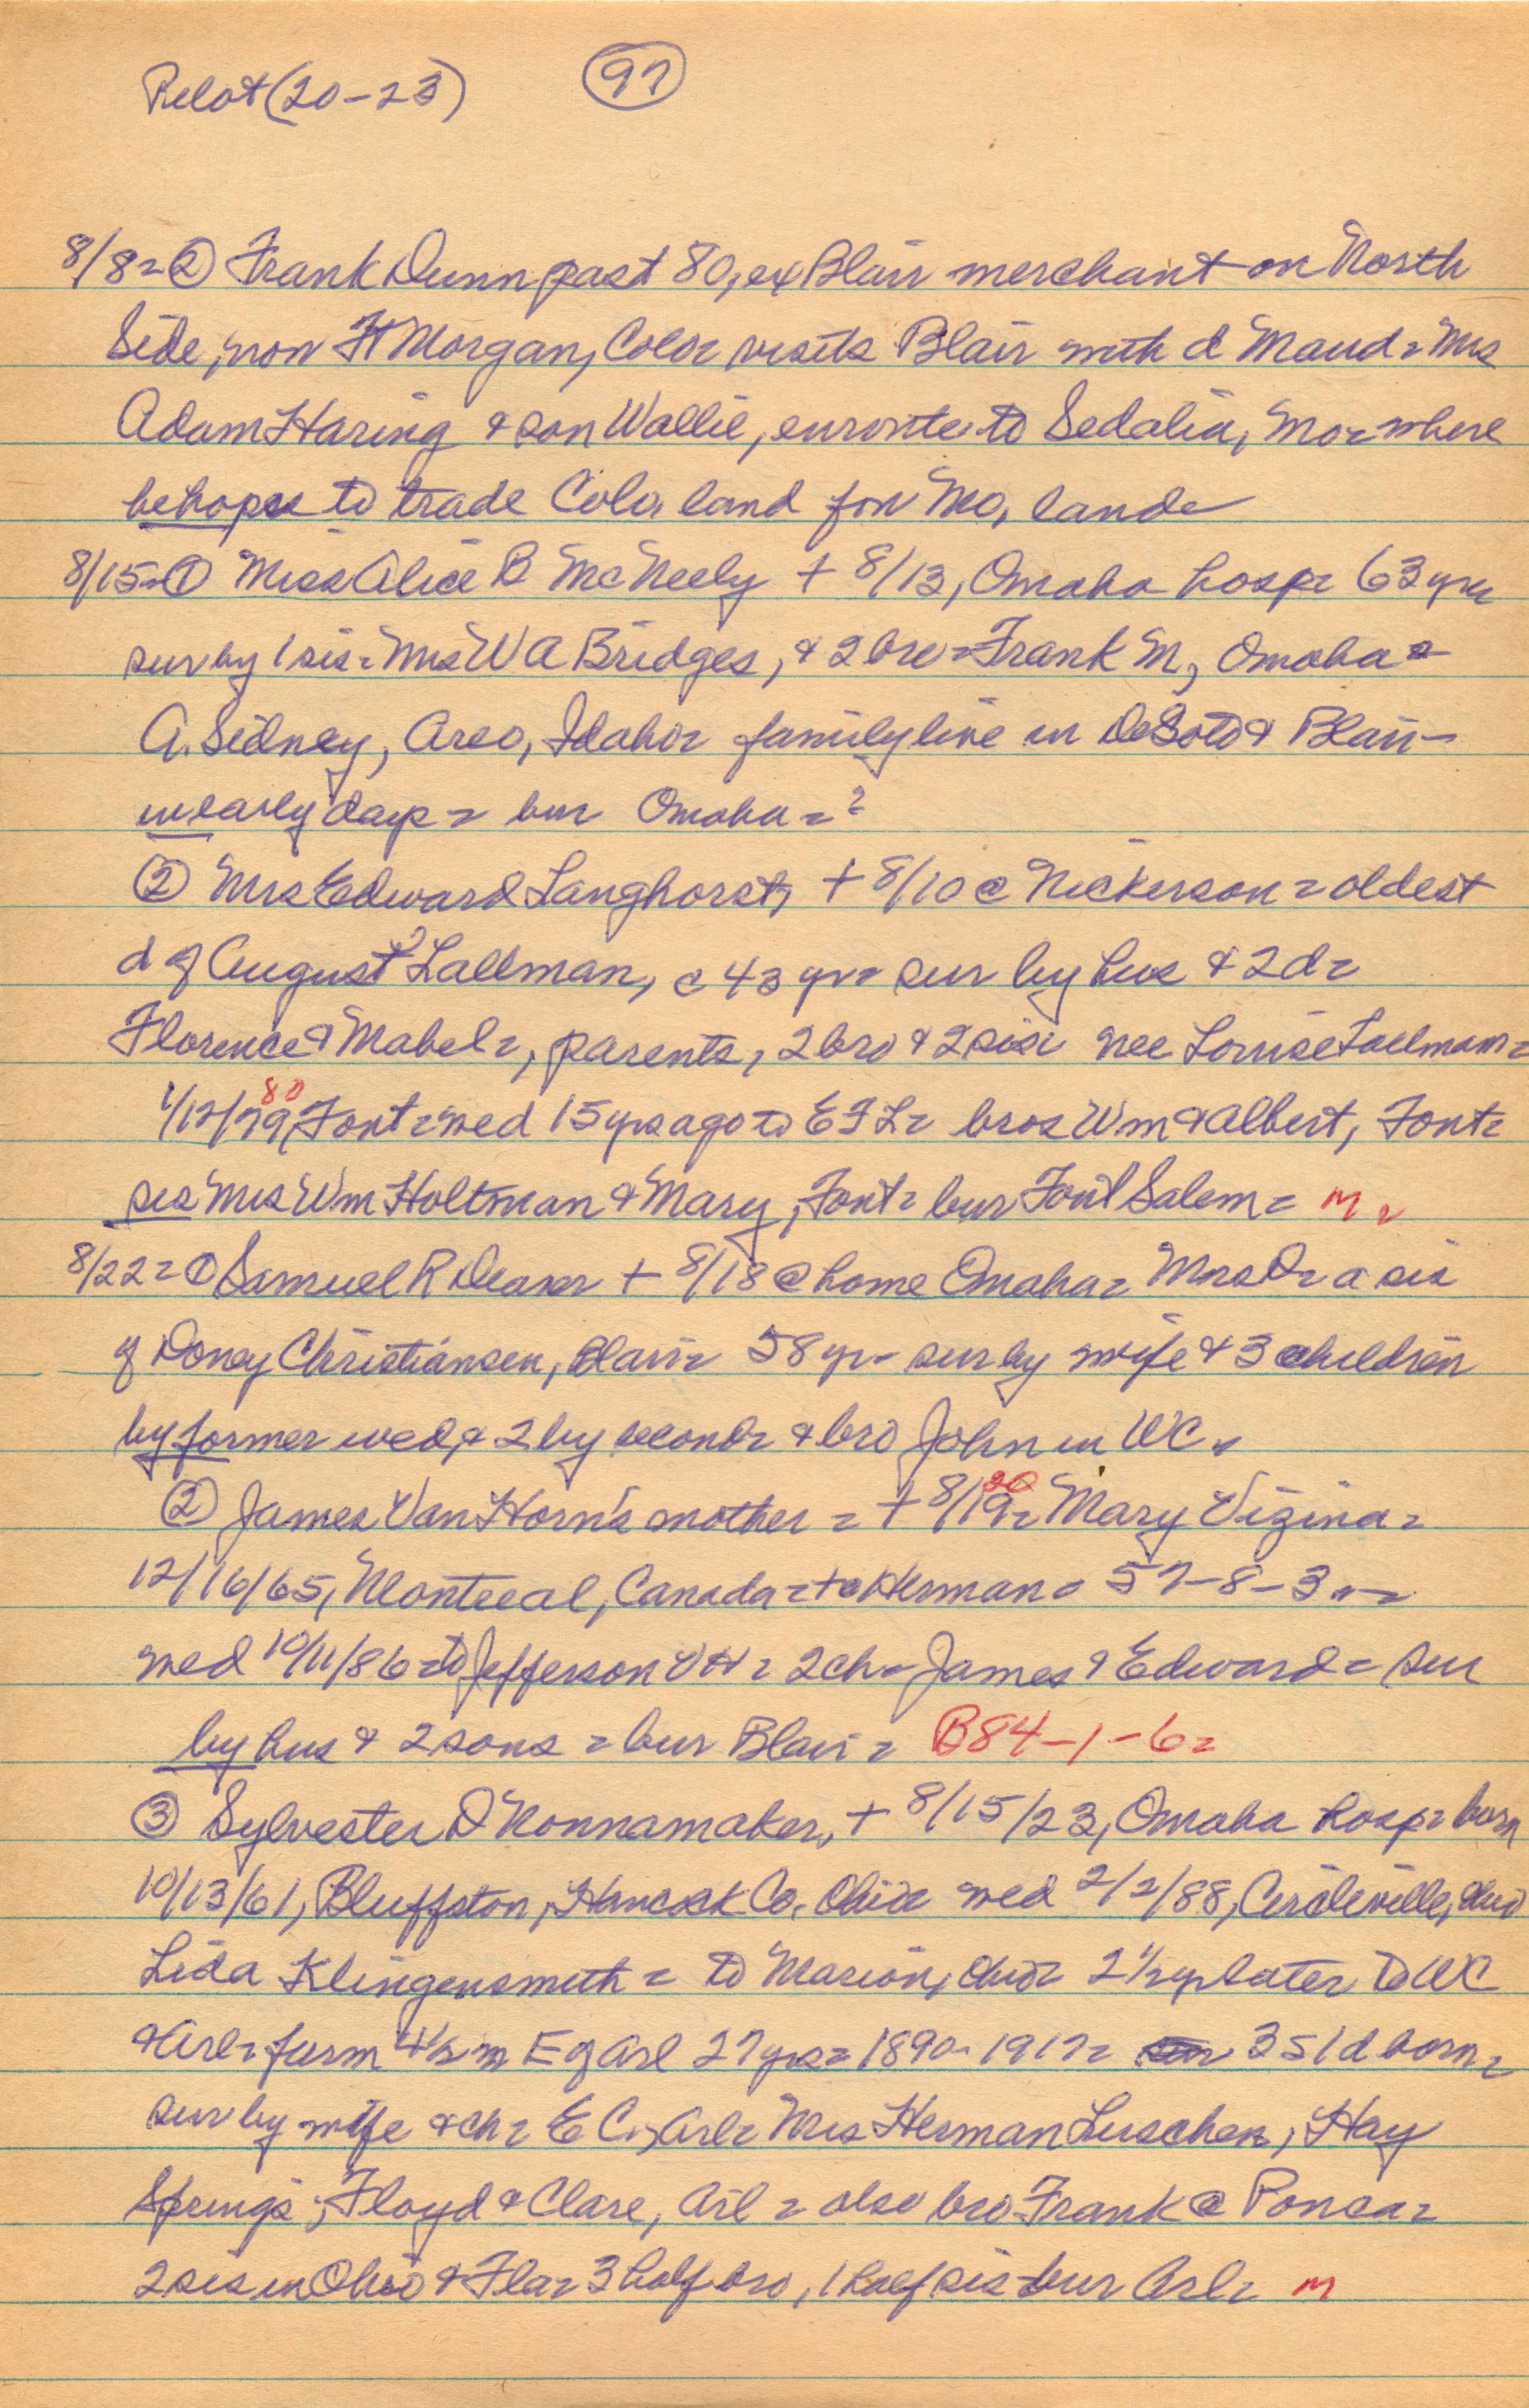 Pilot (20-23) 97
8/8= ② Frank Dunn past 80, ex Blair merchant on North
Side, now Ft Morgan, Colo= visits Blair with d Maud= Mrs
Adam Haring & son Wallie, enroute to Sedalia, Mo= where
he hopes to trade Colo. land for Mo, land=
8/15= ① Miss Alice B McNeely + 8/13, Omaha hosp= 63 yrs
sur by 1 sis= Mrs W A Bridges, & 2 bro= Frank M, Omaha &
A. Sidney, Arco, Idaho= family live in DeSoto & Blair
in early days= bur Omaha=?
② Mrs Edward Langhorst, + 8/10 @ Nickerson= oldest
d of August Lallman, c 43 yr= sur by hus & 2 d=
Florence & Mabel=, parents, 2 bro & 2 sis= nee Louise Lallman=
1/12/79, 80 Font= wed 15 yrs ago to E F L= bros Wm & Albert, Font=
sis Mrs Wm Holtman & Mary, Font= bur Font Salem= M=
8/22= ① Samuel R Deaver + 8/18 @ home Omaha= Mrs D= a sis
of Doney Christiansen, Blair= 58 yr= sur by wife & 3 children
by former wed, & 2 by second= & bro John in WC=
② James Van Horn's mother= + 8/19= 20 Mary Vizina=
12/16/65, Montreal, Canada= + @ Herman= 57-8-3 "=
wed 10/11/86= to Jefferson VH= 2 ch= James & Edward= sur
by hus & 2 sons= bur Blair= B84-1-6=
③ Sylvester D Nonnamaker, + 8/15/23, Omaha hosp= born
10/13/61, Bluffton, Hancock Co. Ohio= wed 2/2/88, Circleville, Ohio
Lida Klingensmith= to Marion, Ohio= 2 1/2 yr later to WC
& Arl= farm 4 1/2 m E of Arl 27 yrs= 1890-1917= 3 s 1 d born=
sur by wife & ch= E C., Arl= Mrs Herman Luschen, Hay
Springs; Floyd & Clare, Arl= also bro Frank @ Ponca=
2 sis in Ohio & Fla= 3 half bro, 1 half sis= bur Arl= M